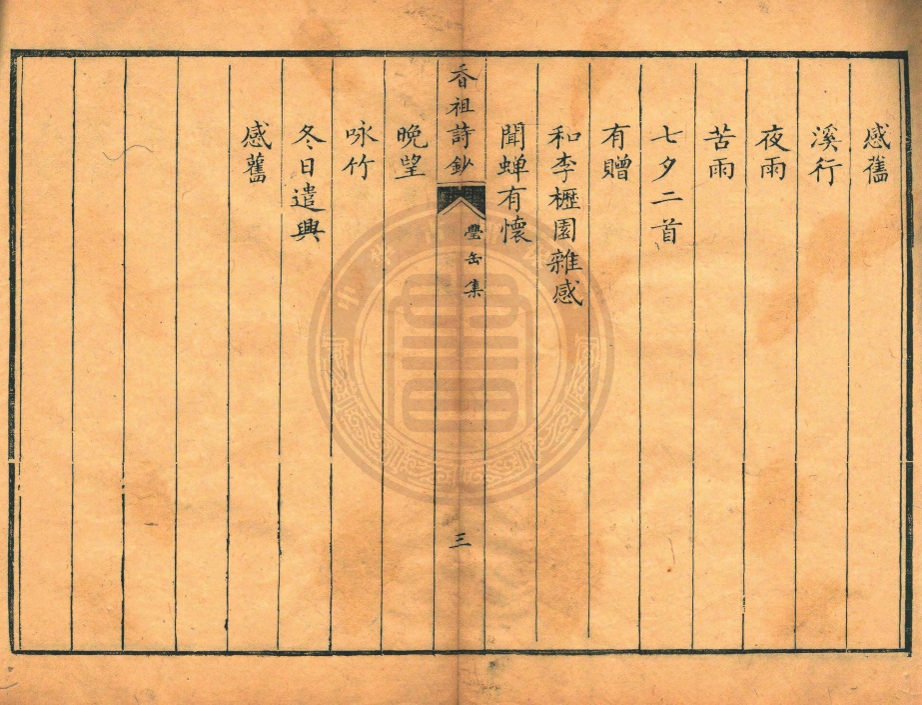 感舊
溪行
夜雨
苦雨
七夕二首
有贈
和李櫪園雜感
聞蟬有懷
香祖詩鈔
罍缶集
三
晚望
咏竹
冬日遣興
感舊